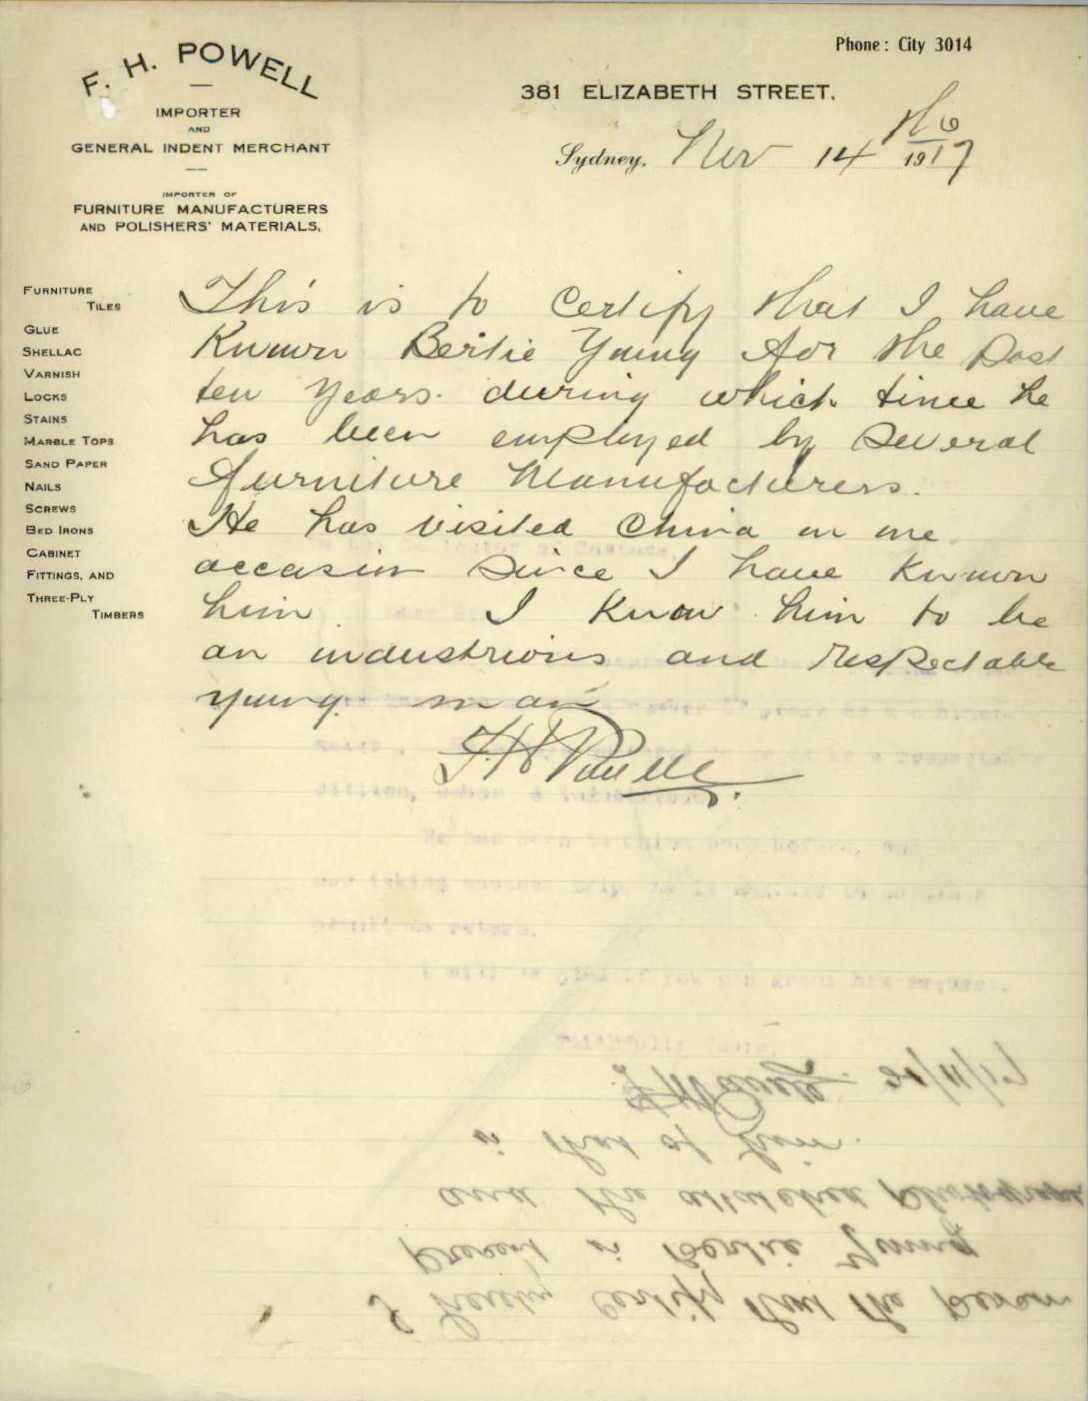 F. H. POWELL
IMPORTER
AND
GENERAL INDENT MERCHANT
IMPORTER OF
FURNITURE MANUFACTURERS
AND POLISHERS' MATERIALS.
Phone: City 3014
381 ELIZABETH STREET.
Sydney, Nov 14 1917
FURNITURE
TILES
GLUE
SHELLAC
VARNISH
LOCKS
STAINS
MARBLE TOPS
SAND PAPER
NAILS
SCREWS
BED IRONS
CABINET
FITTINGS, AND
THREE-PLY
TIMBERS
This is to Certify that I have
Known Bertie Young for the Past
ten years. during which time he
has been employed by Several
furniture Manufacturers.
He has visited China on one
occasion Since I have Known
him. I Know him to be
an industrious and Respectable
young man
F. H. Powell.
I hereby Certify that the person
present is Bertie Young
and the attached photograph
is that of him.
F H Powell 21/11/17